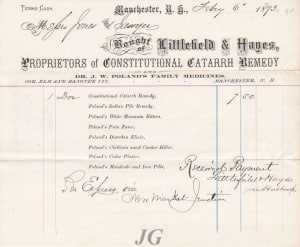 TERMS CASH.
Manchester, N. H., Feby 6 1893
Messrs Jones & Sawyer
Bought of Littlefield & Hayes,
PROPRIETORS OF CONSTITUTIONAL CATARRH REMEDY
AND
DR. J. W. POLAND'S FAMILY MEDICINES.
COR. ELM AND HANOVER STS. MANCHESTER, N. H.
1 Doz Constitutional Catarrh Remedy, 7 50
Poland's Indian Pile Remedy,
Poland's White Mountain Bitters,
Poland's Pain Eaver,
Poland's Diarrhea Elixir,
Poland's Chilblain and Canker Killer,
Poland's Cedar Plaster,
Poland's Mandrake and Iron Pills,
Received Payment
Littlefield & Hayes
Per Express via
Junction
JG